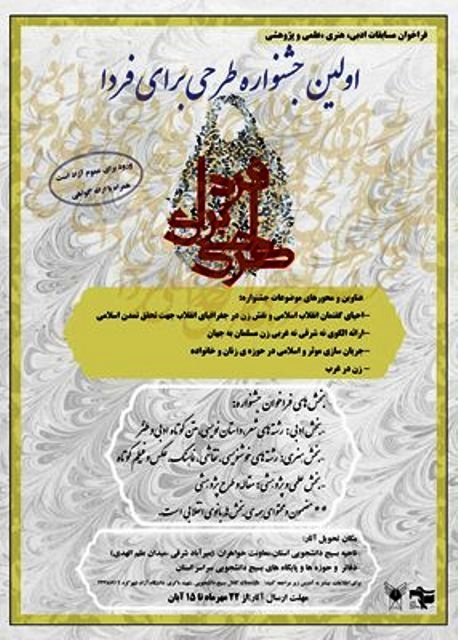 فراخوان مسابقات ادبی، هنری ،علمی و پژوهشی
اولین جشنواره طرحی برای فردا
ورود برای عموم آزاد است
همراه با ارائه گواهی
طرحی
برای
فردا
عناوین و محورهای موضوعات جشنواره:
-احیای گفتمان انقلاب اسلامی و نقش زن در جغرافیای انقلاب جهت تحقق تمدن اسلامی
-ارائه الگوی نه شرقی نه غربی زن مسلمان به جهان
-جریان سازی موثر و اسلامی در حوزه ی زنان و خانواده
- زن در غرب
بخش های فراخوان جشنواره:
-بخش ادبی: رشته های شعر، داستان نویسی، متن کوتاه ادبی و طنز
-بخش هنری: رشته های خوشنویسی، نقاشی، عکس و فیلم کوتاه
-بخش علمی و پژوهشی: مقاله و طرح پژوهشی
** مضمون و محتوای همه ی بخش ها بانوی انقلابی است.
مکان تحویل آثار:
ناحیه بسیج دانشجویی استان،معاونت خواهران (میرآباد شرقی ،میدان علم الهدی)
دفاتر و حوزه ها و پایگاه های بسیج دانشجویی سراسر استان
مهلت ارسال آثار:از ۲۲ مهرماه تا ۱۵ آبان